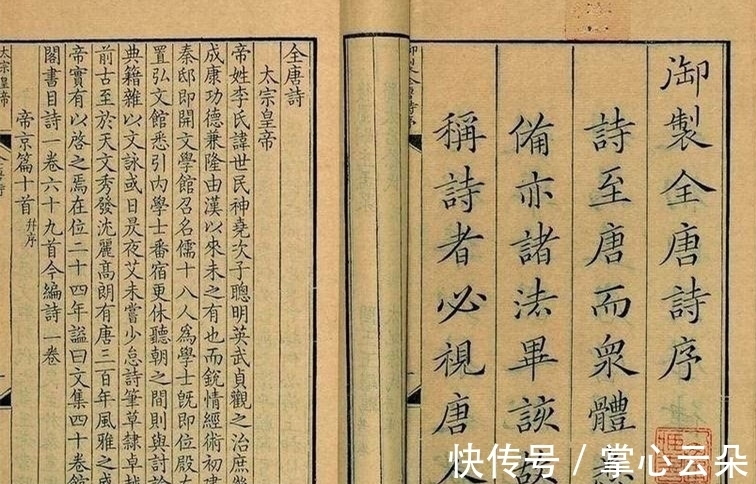 御製全唐詩序
詩至唐而衆體悉
備亦諸法畢該故
稱詩者必視唐人
全唐詩
太宗皇帝
帝姓李氏諱世民神堯次子聰明英武貞觀之治庶幾
成康功德兼隆由漢以來未之有也而銳情經術初建
秦邸即開文學館召名儒十八人為學士旣即位殿左
置弘文館悉引內學士番宿更休聽朝之間則與討論
典籍雜以文詠或日昃夜艾未嘗少怠詩筆草隸卓越
前古至於天文秀發沈麗高朗有唐三百年風雅之盛
帝實有以啓之焉在位二十四年諡曰文集四十卷
閣書目詩一卷六十九首今編詩一卷
帝京篇十首 幷序
太宗皇帝
快传号 / 掌心云朵